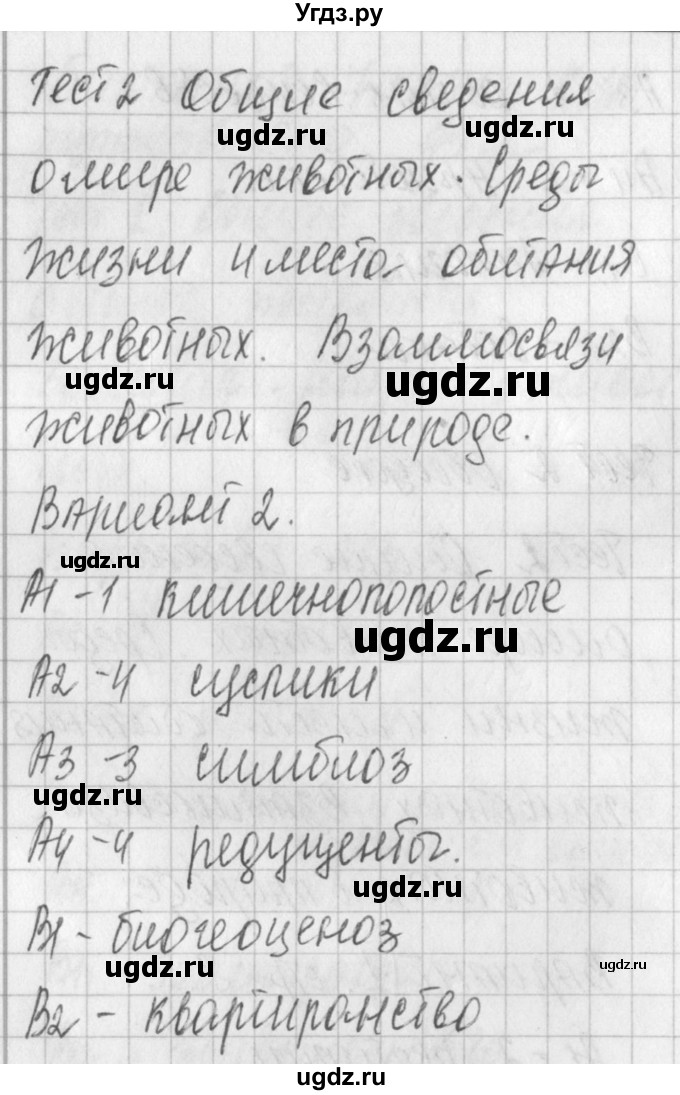 Угдз.ру
Тест 2 Общие сведения
ugdz.ru ugdz.ru
о мире животных. Среды
жизни и места обитания
животных. Взаимосвязи
ugdz.ru ugdz.ru
животных в природе.
Вариант 2.
ugdz.ru
А1 - 1 кишечнополостные
ugdz.ru
А2 - 4 суслики
А3 - 3 симбиоз
ugdz.ru
А4 - 4 редуценты.
ugdz.ru
В1 - биогеоценоз
ugdz.ru ugdz.ru
В2 - квартиранство
ugdz.ru